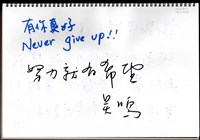 有你真好
Never give up!!
努力就有希望
吴鸣